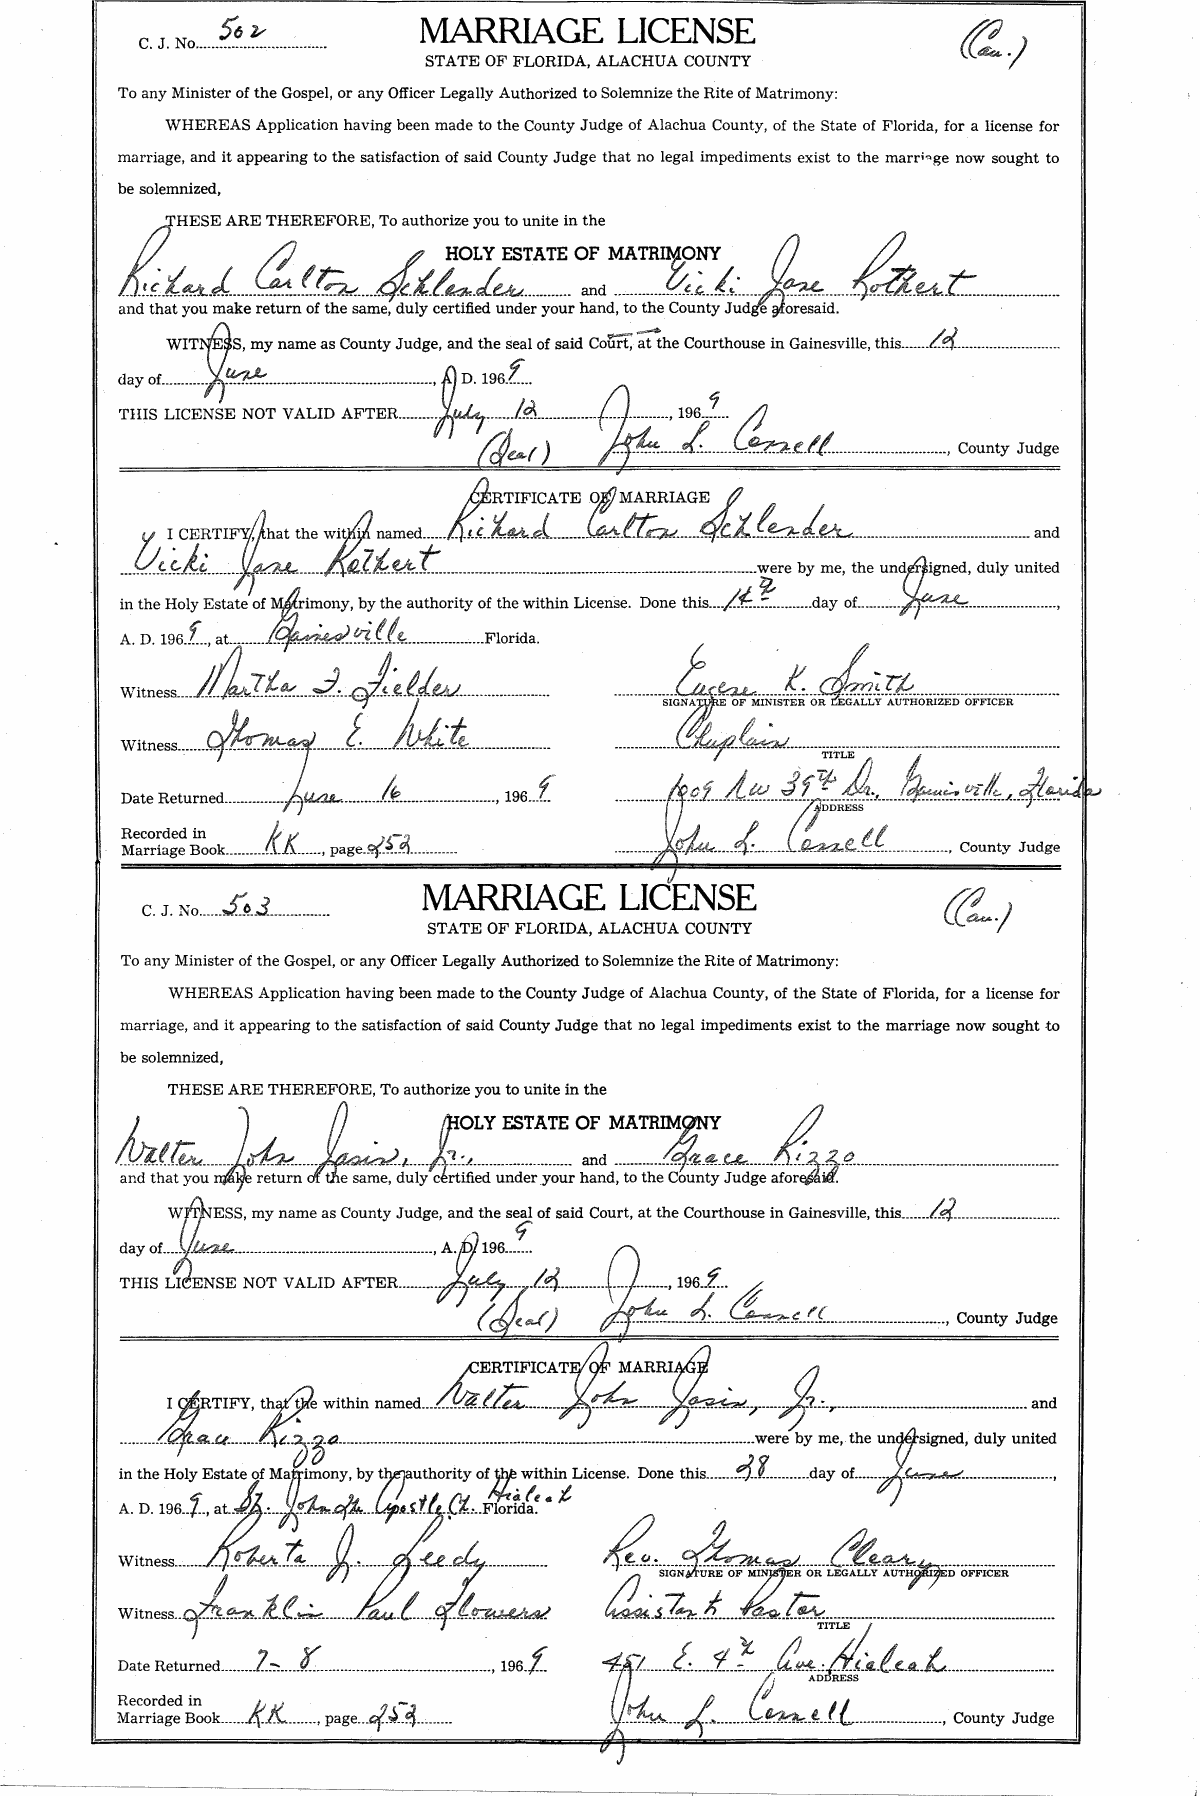 C. J. No. 502 MARRIAGE LICENSE (Cau.)
STATE OF FLORIDA, ALACHUA COUNTY
To any Minister of the Gospel, or any Officer Legally Authorized to Solemnize the Rite of Matrimony:
WHEREAS Application having been made to the County Judge of Alachua County, of the State of Florida, for a license for
marriage, and it appearing to the satisfaction of said County Judge that no legal impediments exist to the marriage now sought to
be solemnized,
THESE ARE THEREFORE, To authorize you to unite in the
HOLY ESTATE OF MATRIMONY
Richard Carlton Schlender and Vicki Jane Rothert
and that you make return of the same, duly certified under your hand, to the County Judge aforesaid.
WITNESS, my name as County Judge, and the seal of said Court, at the Courthouse in Gainesville, this 12
day of June, A. D. 1969
THIS LICENSE NOT VALID AFTER July 12, 1969
(Seal) John L. Connell, County Judge
CERTIFICATE OF MARRIAGE
I CERTIFY, that the within named Richard Carlton Schlender and
Vicki Jane Rothert were by me, the undersigned, duly united
in the Holy Estate of Matrimony, by the authority of the within License. Done this 14th day of June,
A. D. 1969, at Gainesville Florida.
Witness Martha F. Fielder Eugene K. Smith
SIGNATURE OF MINISTER OR LEGALLY AUTHORIZED OFFICER
Witness Thomas E. White Chaplain
TITLE
Date Returned June 16, 1969 1909 NW 39th Dr., Gainesville, Florida
ADDRESS
Recorded in
Marriage Book KK, page 252 John L. Connell, County Judge
C. J. No. 503 MARRIAGE LICENSE (Cau.)
STATE OF FLORIDA, ALACHUA COUNTY
To any Minister of the Gospel, or any Officer Legally Authorized to Solemnize the Rite of Matrimony:
WHEREAS Application having been made to the County Judge of Alachua County, of the State of Florida, for a license for
marriage, and it appearing to the satisfaction of said County Judge that no legal impediments exist to the marriage now sought to
be solemnized,
THESE ARE THEREFORE, To authorize you to unite in the
HOLY ESTATE OF MATRIMONY
Walter John Jasin, Jr., and Grace Rizzo
and that you make return of the same, duly certified under your hand, to the County Judge aforesaid.
WITNESS, my name as County Judge, and the seal of said Court, at the Courthouse in Gainesville, this 12
day of June, A. D. 1969
THIS LICENSE NOT VALID AFTER July 12, 1969
(Seal) John L. Connell, County Judge
CERTIFICATE OF MARRIAGE
I CERTIFY, that the within named Walter John Jasin, Jr., and
Grace Rizzo were by me, the undersigned, duly united
in the Holy Estate of Matrimony, by the authority of the within License. Done this 28 day of June,
A. D. 1969, at St. John the Apostle Ch. Hialeah Florida.
Witness Roberta J. Leedy Rev. Thomas Cleary
SIGNATURE OF MINISTER OR LEGALLY AUTHORIZED OFFICER
Witness Franklin Paul Flowers Assistant Pastor
TITLE
Date Returned 7-8, 1969 451 E. 4th Ave. Hialeah
ADDRESS
Recorded in
Marriage Book KK, page 252 John L. Connell, County Judge